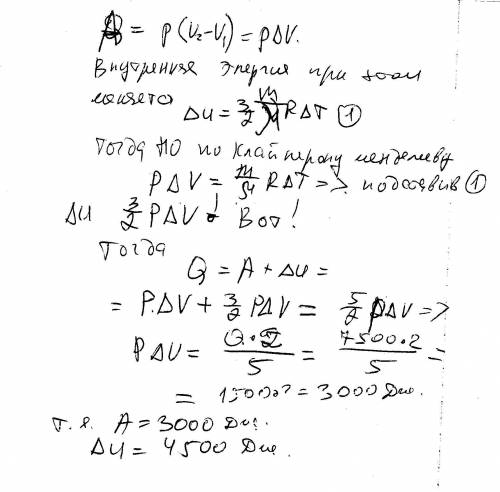 A = P(V₂-V₁) = PΔV.
Внутренняя энергия при этом
меняется ΔU = 3/2 m/M RΔT ①
Тогда НО по Клайперону менделееву
PΔV = m/M RΔT => подставив ①
ΔU 3/2 PΔV ! Вот!
Тогда
Q = A + ΔU =
= P.ΔV + 3/2 PΔV = 5/2 PΔV =>
PΔU = Q·2/5 = 7500·2/5 =
= 1500·2 = 3000 Дж.
т.е. A = 3000 Дж.
ΔU = 4500 Дж.